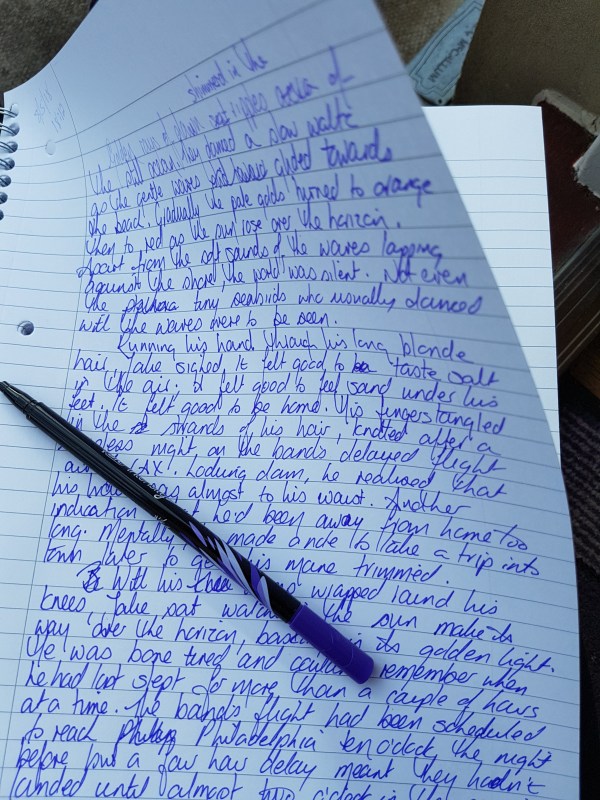 shimmered in the
rays of dawn
the still ocean they danced a slow waltz
as the gentle waves glided towards
the beach. Gradually the pale golds turned to orange
then to red as the sun rose over the horizon.
Apart from the soft sounds of the waves lapping
against the shore, the world was silent. Not even
the tiny seabirds who usually danced
with the waves were to be seen.
Running his hand through his long blonde
hair, Jake sighed. It felt good to taste salt
in the air. It felt good to feel sand under his
feet. It felt good to be home. His fingers tangled
in the strands of his hair, knotted after a
night on the band's delayed flight
LAX. Looking down, he realised that
his almost to his waist. Another
indication he'd been away from home too
long. Mentally made a note to take a trip into
town later to his mane trimmed.
With his wrapped round his
knees, Jake sat the sun make its
way over the horizon, in its golden light.
He was bone tired and remember when
he had last slept for more than a couple of hours
at a time. The band's flight had been scheduled
to reach Philadelphia ten o'clock the night
before but a few hour delay meant they hadn't
landed until almost two o'clock in the